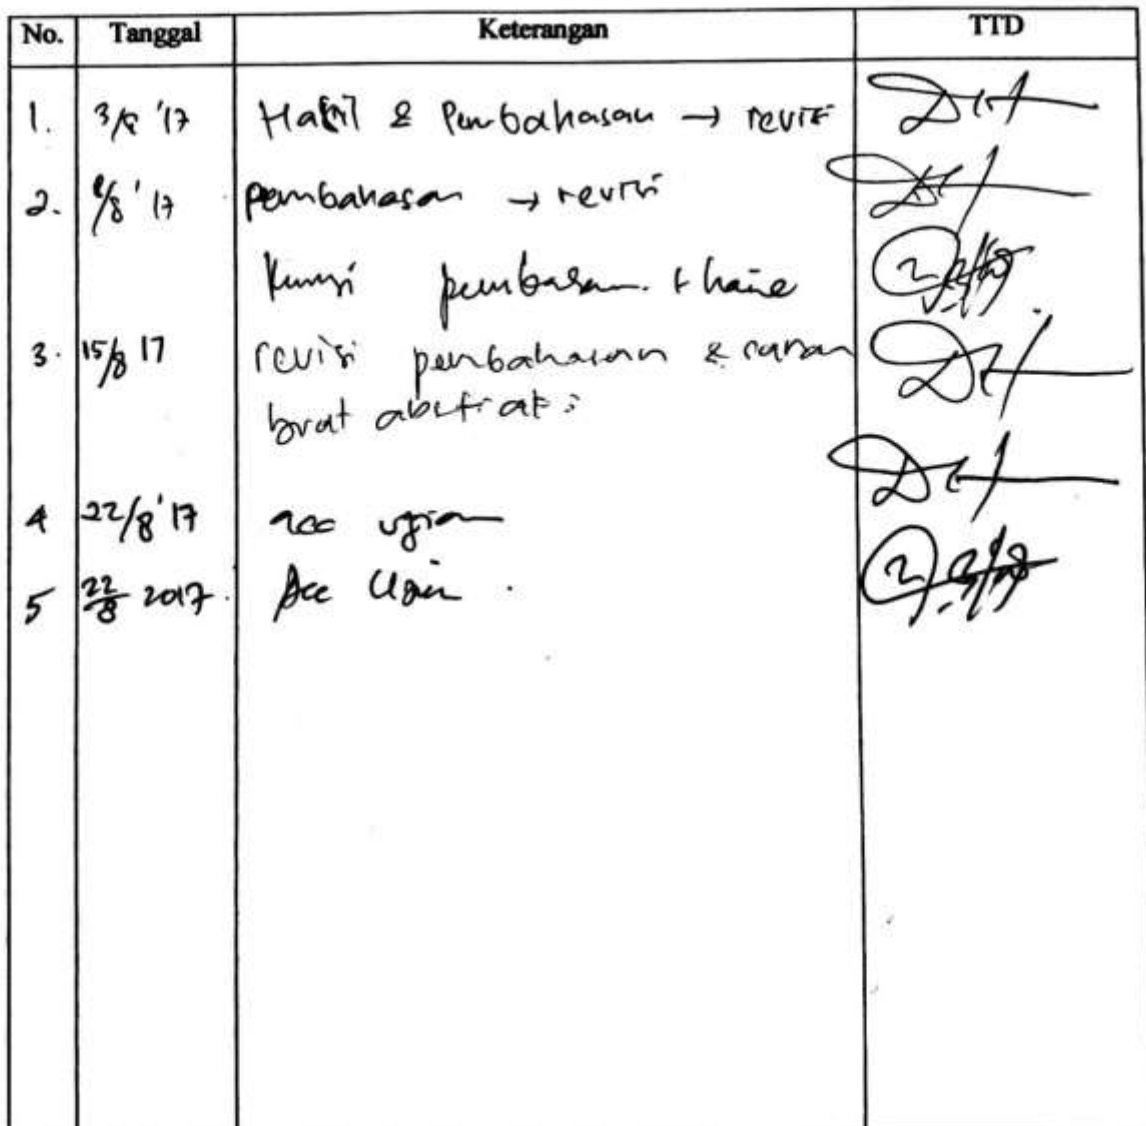 No. Tanggal Keterangan TTD
1. 3/8 '17 Hasil & Pembahasan → revisi
2. 8/8 '17 pembahasan → revisi
3. 15/8 17 revisi pembahasan & saran
buat abstrak
4 22/8 '17 acc ujian
5 22/8 2017. Acc Ujian.